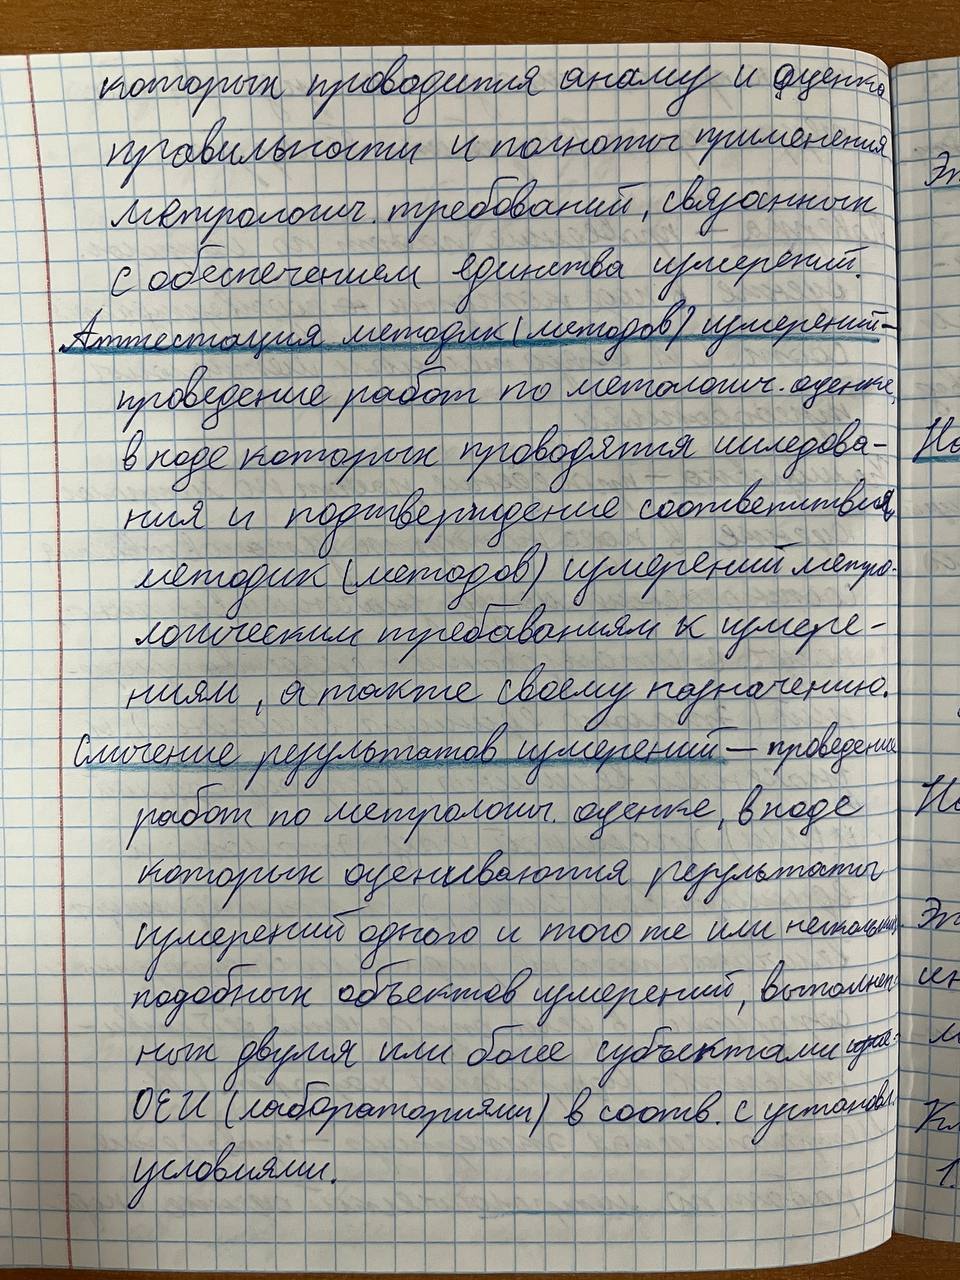 которых проводится анализ и оценка
правильности и полноты применения
метрологич. требований, связанных
с обеспечением единства измерений.
Аттестация методик (методов) измерений –
проведение работ по метологич. оценке,
в ходе которых проводятся исследова-
ния и подтверждение соответствия
методик (методов) измерений метро-
логическим требаваниям к измере-
ниям, а также своему назначению.
Сличение результатов измерений – проведение
работ по метрологич. оценке, в ходе
которых оцениваются результаты
измерений одного и того же или нескольких
подобных объектов измерений, выполнен-
ных двумя или более субъектами
ОЕИ (лабораториями) в соотв. с установл.
условиями.
Эт
На
На
Эт
ин
м
Кл
1.